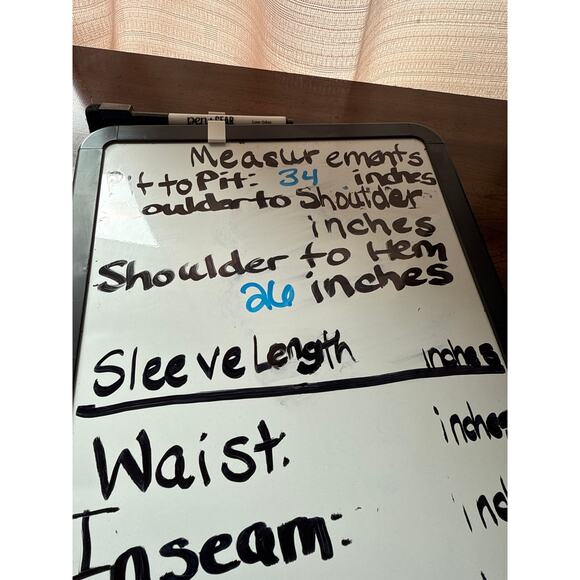 Pen+Gear
Measurements
Pit to Pit: 34 inches
oulder to Shoulder
inches
Shoulder to Hem
26 inches
Sleeve Length inches
Waist: inches
Inseam: